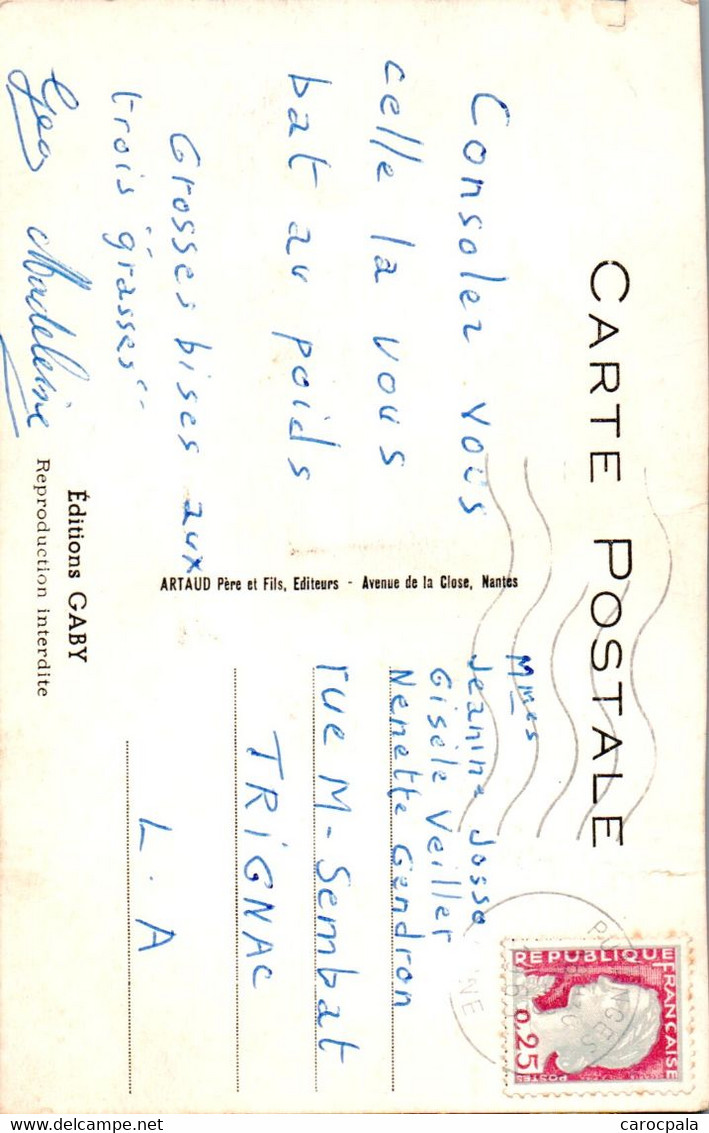 CARTE POSTALE
Consolez vous
celle la vous
bat au poids
Grosses bises aux
trois "grasses"
Geo Madeleine
Éditions GABY
Reproduction interdite
ARTAUD Père et Fils, Editeurs - Avenue de la Close, Nantes
Mmes
Jeanine Josso
Gisèle Veiller
Nenette Gendron
rue M-Sembat
TRIGNAC
L.A
REPUBLIQUE FRANÇAISE
0,25
POSTES
delcampe.net
carocpala